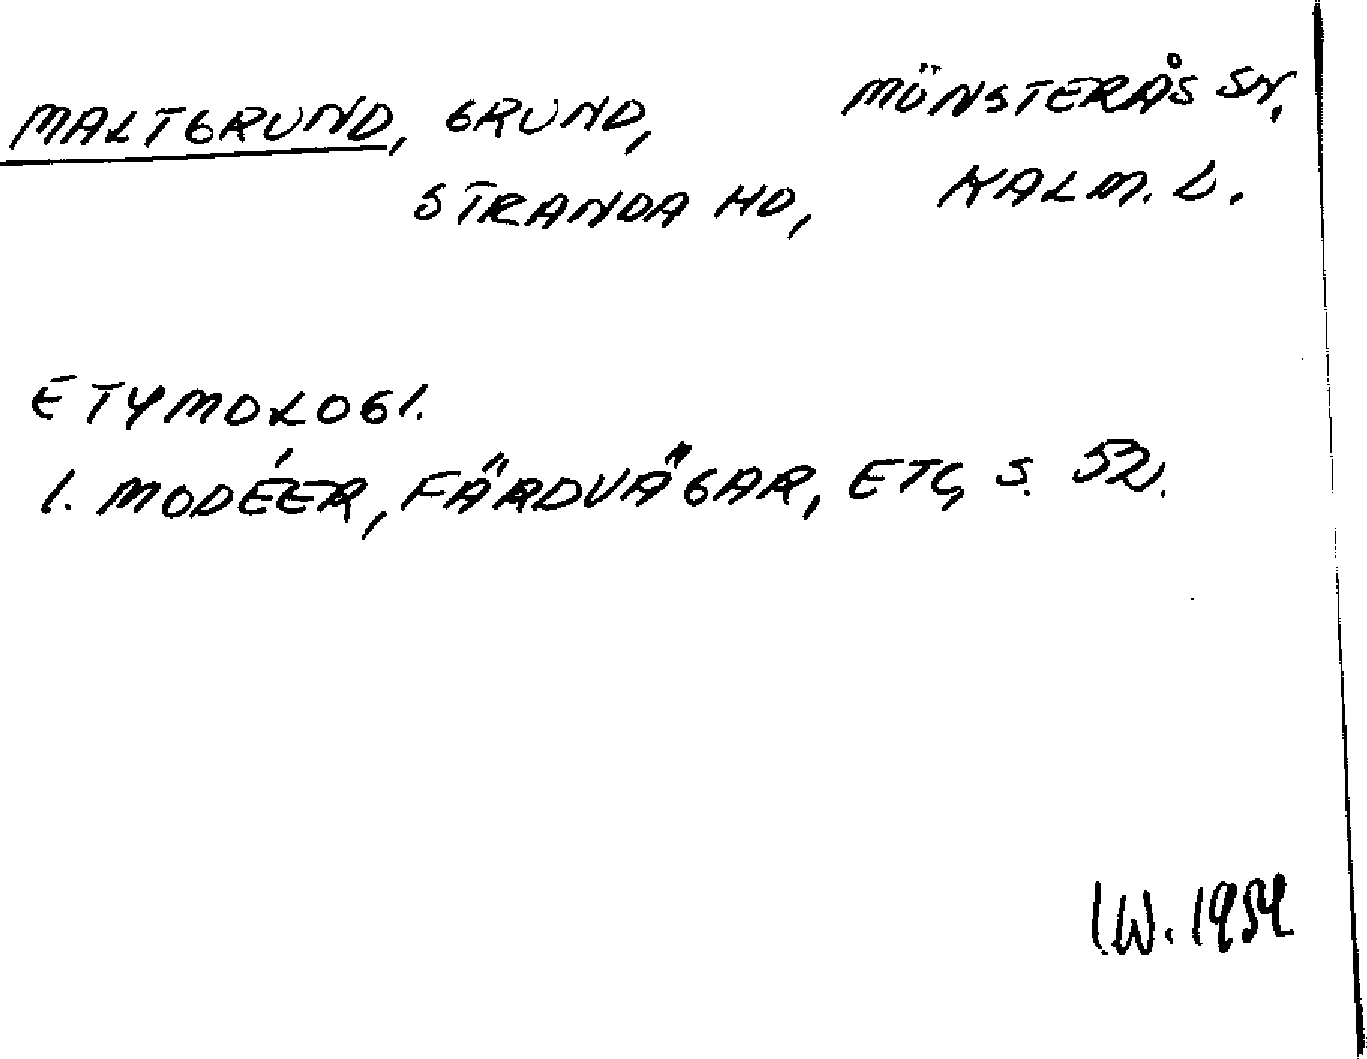 MALTGRUND, GRUND, MÖNSTERÅS SN.
STRANDA HD, KALM. L.
ETYMOLOGI.
1. MODÉER, FÄRDVÄGAR, ETC, S. 52.
IW. 1954